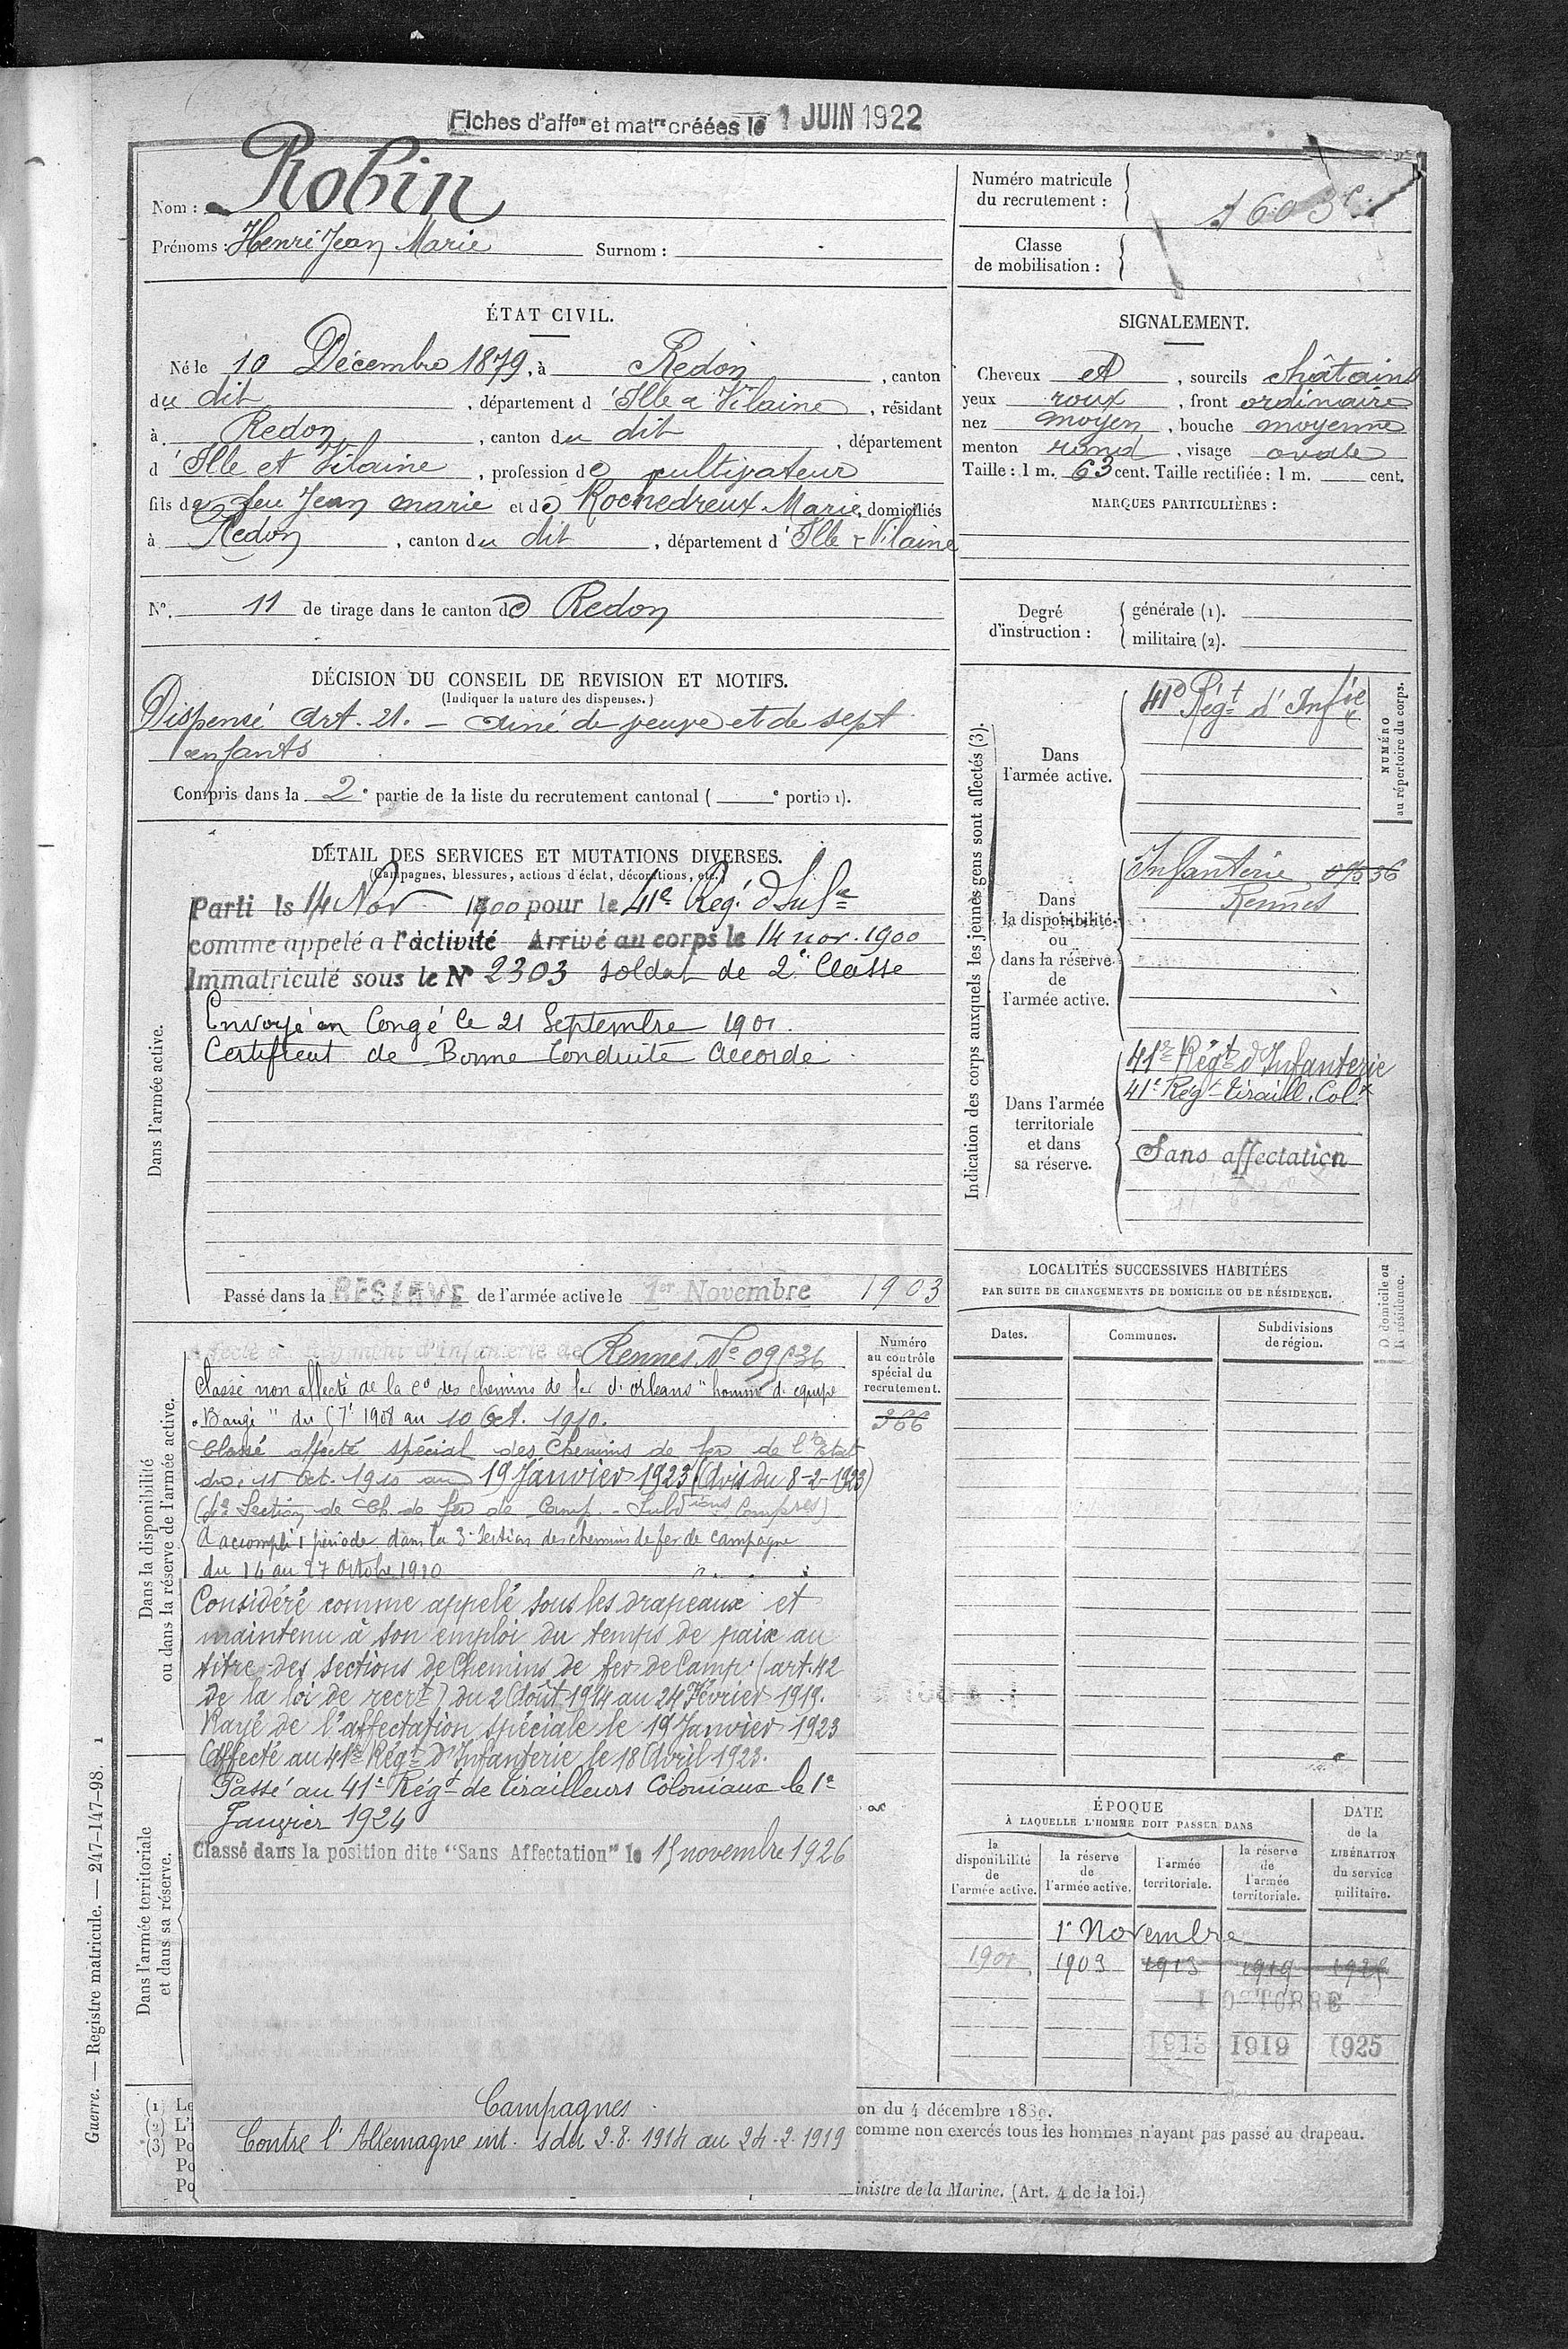 Fiches d'affon et matre créées le 1 JUIN 1922
Nom : Robin
Prénoms : Henri Jean Marie Surnom :
ÉTAT CIVIL.
Né le 10 Décembre 1879, à Redon, canton
du dit, département d'Ille & Vilaine, résidant
à Redon, canton du dit, département
d'Ille et Vilaine, profession de cultivateur
fils de feu Jean Marie et de Rochedreux Marie, domiciliés
à Redon, canton du dit, département d'Ille & Vilaine
N°. 11 de tirage dans le canton de Redon
DÉCISION DU CONSEIL DE REVISION ET MOTIFS.
(Indiquer la nature des dispenses.)
Dispensé Art. 21. – Aîné de veuve et de sept
enfants
Compris dans la 2e partie de la liste du recrutement cantonal ( e portion).
DÉTAIL DES SERVICES ET MUTATIONS DIVERSES.
(Campagnes, blessures, actions d'éclat, décorations, etc.)
Dans l'armée active.
Parti le 14 Nov 1900 pour le 41e Rég. d'Infie
comme appelé à l'activité Arrivé au corps le 14 nov. 1900
Immatriculé sous le N° 2303 soldat de 2e Classe
Envoyé en Congé le 21 Septembre 1901.
Certificat de Bonne Conduite Accordé
Passé dans la RÉSERVE de l'armée active le 1er Novembre 1903
Dans la disponibilité
ou dans la réserve de l'armée active.
Régiment d'Infanterie de Rennes N°
Classé non affecté de la Cie des chemins de fer d'Orléans "homme d'équipe
1908 au 10 Oct. 1910.
Classé affecté spécial des Chemins de fer de l'Etat
du 11 Oct. 1910 au 19 Janvier 1923 (Avis du 8-2-1923)
Section de Ch. de fer de Camp. - Subdions Compres)
A accompli 1 période dans la 3e Section des chemins de fer de campagne
du 14 au 27 Octobre 1910
Considéré comme appelé sous les drapeaux et
maintenu à son emploi du temps de paix au
titre des sections de Chemins de fer de Camp. (art. 42
de la loi de recrt) du 2 Août 1914 au 24 Février 1919.
Rayé de l'affectation spéciale le 19 Janvier 1923
Affecté au 41e Régt d'Infanterie le 18 Avril 1923.
Passé au 41e Régt de Tirailleurs Coloniaux le 1er
Janvier 1924
Classé dans la position dite "Sans Affectation" le 15 novembre 1926
Dans l'armée territoriale
et dans sa réserve.
Campagnes
Contre l'Allemagne int. s du 2.8.1914 au 24.2.1919
Numéro
au contrôle
spécial du
recrutement.
366
Numéro matricule
du recrutement : 1603
Classe
de mobilisation :
SIGNALEMENT.
Cheveux et, sourcils châtains
yeux roux, front ordinaire
nez moyen, bouche moyenne
menton rond, visage ovale
Taille : 1 m. 63 cent. Taille rectifiée : 1 m. cent.
MARQUES PARTICULIÈRES :
Degré
d'instruction :
générale (1).
militaire (2).
Indication des corps auxquels les jeunes gens sont affectés (3).
NUMÉRO
au répertoire du corps.
Dans
l'armée active.
41e Régt d'Infie
Dans
la disponibilité
ou
dans la réserve
de
l'armée active.
Infanterie
Rennes
Dans l'armée
territoriale
et dans
sa réserve.
41e Régt d'Infanterie
41e Régt Tiraill. Colx
Sans affectation
LOCALITÉS SUCCESSIVES HABITÉES
PAR SUITE DE CHANGEMENTS DE DOMICILE OU DE RÉSIDENCE.
Dates.
Communes.
Subdivisions
de région.
D domicile ou
R résidence.
ÉPOQUE
À LAQUELLE L'HOMME DOIT PASSER DANS
la
disponibilité
de
l'armée active.
la réserve
de
l'armée active.
l'armée
territoriale.
la réserve
de
l'armée
territoriale.
DATE
de la
LIBÉRATION
du service
militaire.
1er Novembre
1903 1913 1919
1 OCTOBRE
1913 1919 1925
(1) Le
(2) L'i
(3) Po
Po
Po
on du 4 décembre 1889.
comme non exercés tous les hommes n'ayant pas passé au drapeau.
inistre de la Marine. (Art. 4 de la loi.)
Guerre. — Registre matricule. — 247-147-98. 1